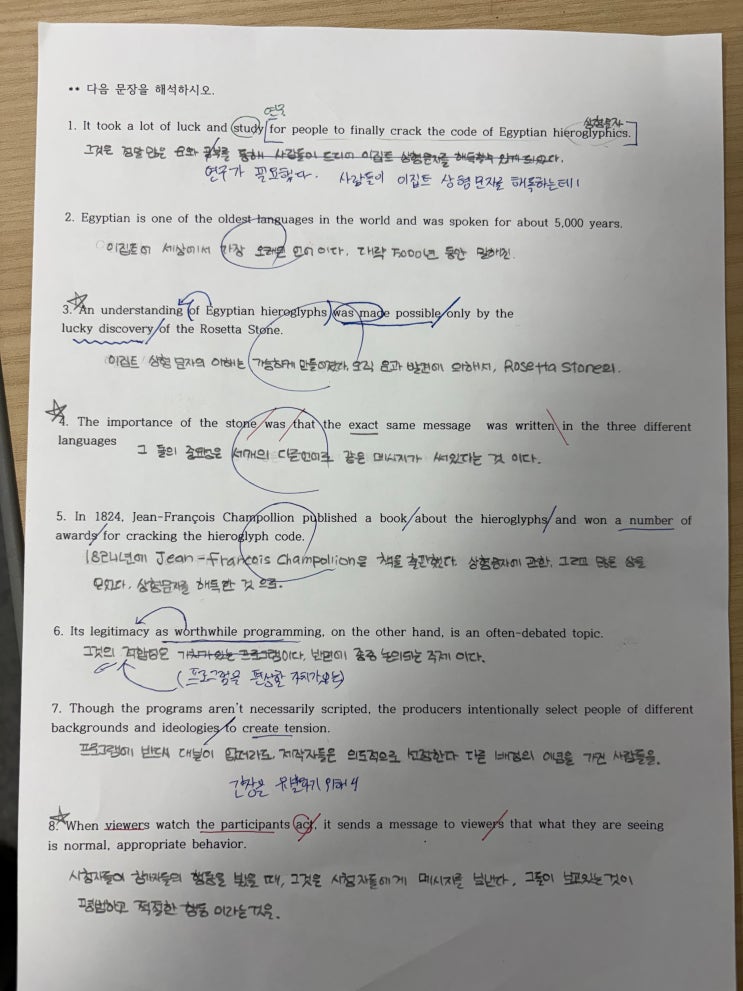 •• 다음 문장을 해석하시오.
연구
상형문자
1. It took a lot of luck and study for people to finally crack the code of Egyptian hieroglyphics.
그것은 정말 많은 운와 공부를 통해 사람들이 드디어 이집트 상형문자를 해독할수 있게 되었다.
연구가 필요했다. 사람들이 이집트 상형문자를 해독하는데
2. Egyptian is one of the oldest languages in the world and was spoken for about 5,000 years.
이집트어 세상에서 가장 오래된 언어이다. 대략 5000년 동안 말해진.
3. An understanding of Egyptian hieroglyphs was made possible only by the
lucky discovery of the Rosetta Stone.
이집트 상형문자의 이해는 가능하게 만들어졌다. 오직 운과 발견에 의해서, Rosetta Stone의.
4. The importance of the stone was that the exact same message was written in the three different
languages
그 돌의 중요성은 세개의 다른언어로 같은 메시지가 써있다는 것 이다.
5. In 1824, Jean-François Champollion published a book about the hieroglyphs and won a number of
awards for cracking the hieroglyph code.
1824년에 Jean-François Champollion은 책을 출판했다. 상형문자에 관한, 그리고 많은 상을
상형문자를 해독한 것 으로.
6. Its legitimacy as worthwhile programming, on the other hand, is an often-debated topic.
그것의 적합성은 가치가있는 프로그램이다, 반면에 종종 논의되는 주제 이다.
(프로그램을 편성할 가치가있는)
7. Though the programs aren't necessarily scripted, the producers intentionally select people of different
backgrounds and ideologies to create tension.
프로그램에 반드시 대본이 없더라도, 제작자들은 의도적으로 선정한다 다른 배경의 이념을 가진 사람들을.
긴장을 유발하기 위해서
8. When viewers watch the participants act, it sends a message to viewers that what they are seeing
is normal, appropriate behavior.
시청자들이 참가자들의 행동을 봤을 때, 그것은 시청자들에게 메시지를 보낸다. 그들이 보고있는것이
평범하고 적절한 행동 이라는것을.